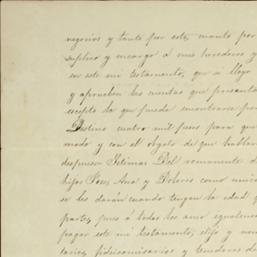 negocios y tanto por esto, cuanto por
suplico y encargo á mis herederos y
en este mi testamento, que si llega
y aprueben las cuentas que presenta
escepto la que puede encontrarse por
Destino cuatro mil pesos para que
modo y con el objeto de que hablar
despues Setimas Del remanente d
hijos Jose, Ana y Dolores como únic
se les darán cuando tengan la edad q
partes, pues á todos los amo igualmen
pagar este mi testamento, elijo y nom
tarios, fideicomisarios y tenedores de